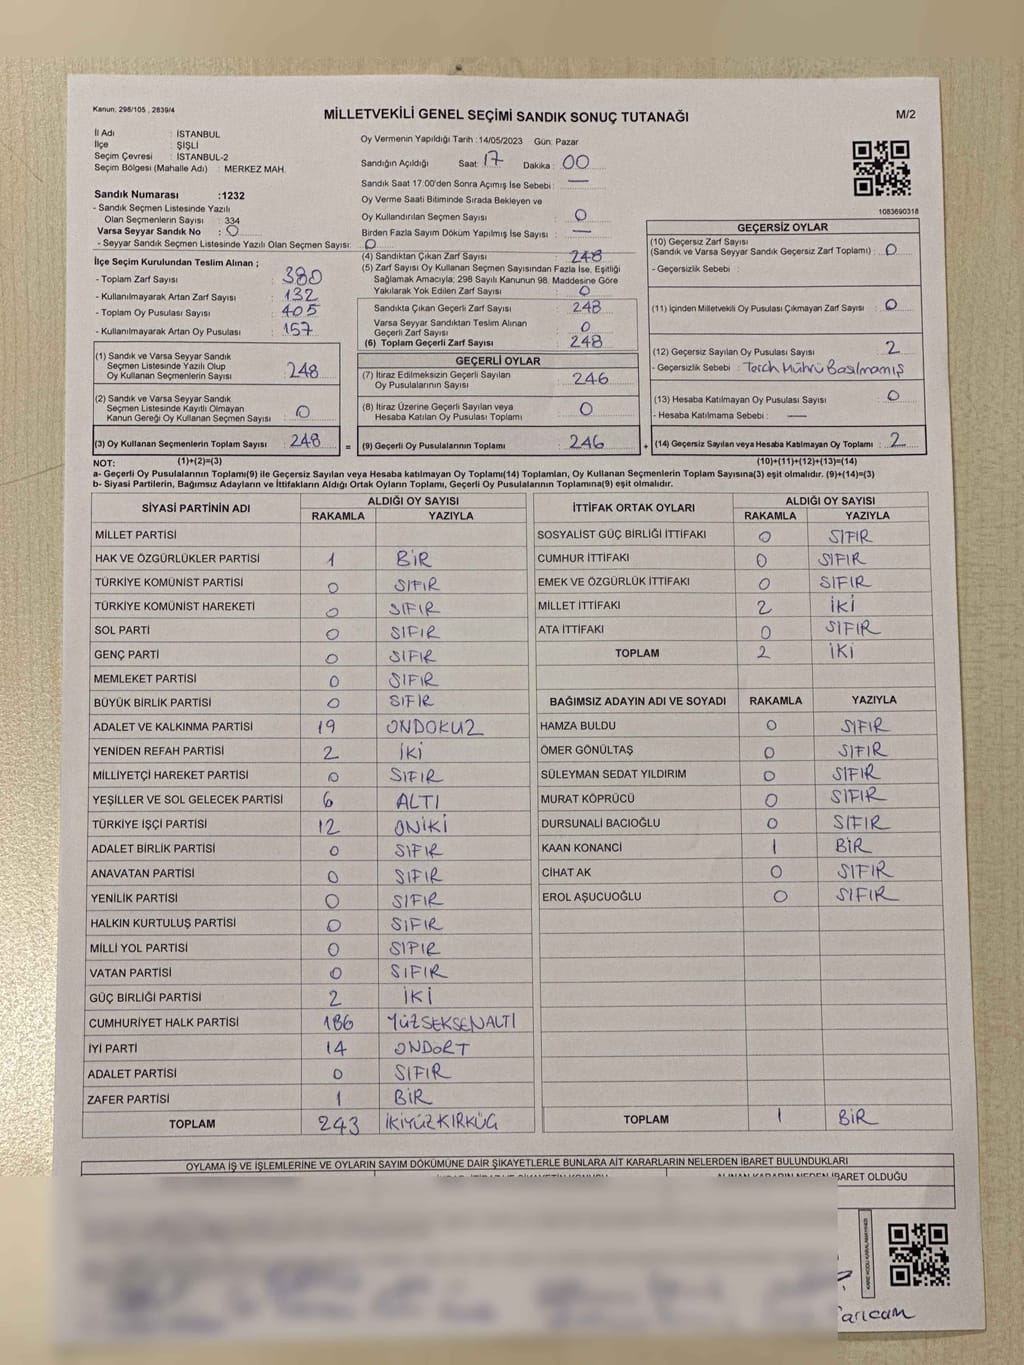 Kanun: 298/105 , 2839/4
MİLLETVEKİLİ GENEL SEÇİMİ SANDIK SONUÇ TUTANAĞI
M/2
İl Adı : İSTANBUL
İlçe : ŞİŞLİ
Seçim Çevresi : İSTANBUL-2
Seçim Bölgesi (Mahalle Adı) : MERKEZ MAH.
Sandık Numarası :1232
- Sandık Seçmen Listesinde Yazılı
Olan Seçmenlerin Sayısı : 334
Varsa Seyyar Sandık No : 0
- Seyyar Sandık Seçmen Listesinde Yazılı Olan Seçmen Sayısı: 0
İlçe Seçim Kurulundan Teslim Alınan ;
- Toplam Zarf Sayısı : 380
- Kullanılmayarak Artan Zarf Sayısı : 132
- Toplam Oy Pusulası Sayısı : 405
- Kullanılmayarak Artan Oy Pusulası : 157
(1) Sandık ve Varsa Seyyar Sandık
Seçmen Listesinde Yazılı Olup
Oy Kullanan Seçmenlerin Sayısı : 248
(2) Sandık ve Varsa Seyyar Sandık
Seçmen Listesinde Kayıtlı Olmayan
Kanun Gereği Oy Kullanan Seçmen Sayısı : 0
(3) Oy Kullanan Seçmenlerin Toplam Sayısı : 248 =
(1)+(2)=(3)
Oy Vermenin Yapıldığı Tarih :14/05/2023 Gün: Pazar
Sandığın Açıldığı Saat: 17 Dakika : 00
Sandık Saat 17:00'den Sonra Açımış İse Sebebi : —
Oy Verme Saati Bitiminde Sırada Bekleyen ve
Oy Kullandırılan Seçmen Sayısı : 0
Birden Fazla Sayım Döküm Yapılmış İse Sayısı : —
(4) Sandıktan Çıkan Zarf Sayısı : 248
(5) Zarf Sayısı Oy Kullanan Seçmen Sayısından Fazla İse, Eşitliği
Sağlamak Amacıyla; 298 Sayılı Kanunun 98. Maddesine Göre
Yakılarak Yok Edilen Zarf Sayısı : 0
Sandıkta Çıkan Geçerli Zarf Sayısı : 248
Varsa Seyyar Sandıktan Teslim Alınan
Geçerli Zarf Sayısı : 0
(6) Toplam Geçerli Zarf Sayısı : 248
GEÇERLİ OYLAR
(7) İtiraz Edilmeksizin Geçerli Sayılan
Oy Pusulalarının Sayısı : 246
(8) İtiraz Üzerine Geçerli Sayılan veya
Hesaba Katılan Oy Pusulası Toplamı : 0
(9) Geçerli Oy Pusulalarının Toplamı : 246 +
1083690318
GEÇERSİZ OYLAR
(10) Geçersiz Zarf Sayısı
(Sandık ve Varsa Seyyar Sandık Geçersiz Zarf Toplamı) : 0
- Geçersizlik Sebebi :
(11) İçinden Milletvekili Oy Pusulası Çıkmayan Zarf Sayısı : 0
(12) Geçersiz Sayılan Oy Pusulası Sayısı : 2
- Geçersizlik Sebebi : Tercih Mührü Basılmamış
(13) Hesaba Katılmayan Oy Pusulası Sayısı : 0
- Hesaba Katılmama Sebebi : —
(14) Geçersiz Sayılan veya Hesaba Katılmayan Oy Toplamı : 2
(10)+(11)+(12)+(13)=(14)
NOT:
a- Geçerli Oy Pusulalarının Toplamı(9) ile Geçersiz Sayılan veya Hesaba katılmayan Oy Toplamı(14) Toplamları, Oy Kullanan Seçmenlerin Toplam Sayısına(3) eşit olmalıdır. (9)+(14)=(3)
b- Siyasi Partilerin, Bağımsız Adayların ve İttifakların Aldığı Ortak Oyların Toplamı, Geçerli Oy Pusulalarının Toplamına(9) eşit olmalıdır.
SİYASİ PARTİNİN ADI ALDIĞI OY SAYISI
RAKAMLA YAZIYLA
MİLLET PARTİSİ
HAK VE ÖZGÜRLÜKLER PARTİSİ 1 BİR
TÜRKİYE KOMÜNİST PARTİSİ 0 SIFIR
TÜRKİYE KOMÜNİST HAREKETİ 0 SIFIR
SOL PARTİ 0 SIFIR
GENÇ PARTİ 0 SIFIR
MEMLEKET PARTİSİ 0 SIFIR
BÜYÜK BİRLİK PARTİSİ 0 SIFIR
ADALET VE KALKINMA PARTİSİ 19 ONDOKUZ
YENİDEN REFAH PARTİSİ 2 İKİ
MİLLİYETÇİ HAREKET PARTİSİ 0 SIFIR
YEŞİLLER VE SOL GELECEK PARTİSİ 6 ALTI
TÜRKİYE İŞÇİ PARTİSİ 12 ONİKİ
ADALET BİRLİK PARTİSİ 0 SIFIR
ANAVATAN PARTİSİ 0 SIFIR
YENİLİK PARTİSİ 0 SIFIR
HALKIN KURTULUŞ PARTİSİ 0 SIFIR
MİLLİ YOL PARTİSİ 0 SIFIR
VATAN PARTİSİ 0 SIFIR
GÜÇ BİRLİĞİ PARTİSİ 2 İKİ
CUMHURİYET HALK PARTİSİ 186 YÜZSEKSENALTI
İYİ PARTİ 14 ONDORT
ADALET PARTİSİ 0 SIFIR
ZAFER PARTİSİ 1 BİR
TOPLAM 243 İKİYÜZKIRKÜÇ
İTTİFAK ORTAK OYLARI ALDIĞI OY SAYISI
RAKAMLA YAZIYLA
SOSYALİST GÜÇ BİRLİĞİ İTTİFAKI 0 SIFIR
CUMHUR İTTİFAKI 0 SIFIR
EMEK VE ÖZGÜRLÜK İTTİFAKI 0 SIFIR
MİLLET İTTİFAKI 2 İKİ
ATA İTTİFAKI 0 SIFIR
TOPLAM 2 İKİ
BAĞIMSIZ ADAYIN ADI VE SOYADI RAKAMLA YAZIYLA
HAMZA BULDU 0 SIFIR
ÖMER GÖNÜLTAŞ 0 SIFIR
SÜLEYMAN SEDAT YILDIRIM 0 SIFIR
MURAT KÖPRÜCÜ 0 SIFIR
DURSUNALİ BACIOĞLU 0 SIFIR
KAAN KONANCİ 1 BİR
CİHAT AK 0 SIFIR
EROL AŞUCUOĞLU 0 SIFIR
TOPLAM 1 BİR
OYLAMA İŞ VE İŞLEMLERİNE VE OYLARIN SAYIM DÖKÜMÜNE DAİR ŞİKAYETLERLE BUNLARA AİT KARARLARIN NELERDEN İBARET BULUNDUKLARI
ALINAN KARARIN NEDEN İBARET OLDUĞU